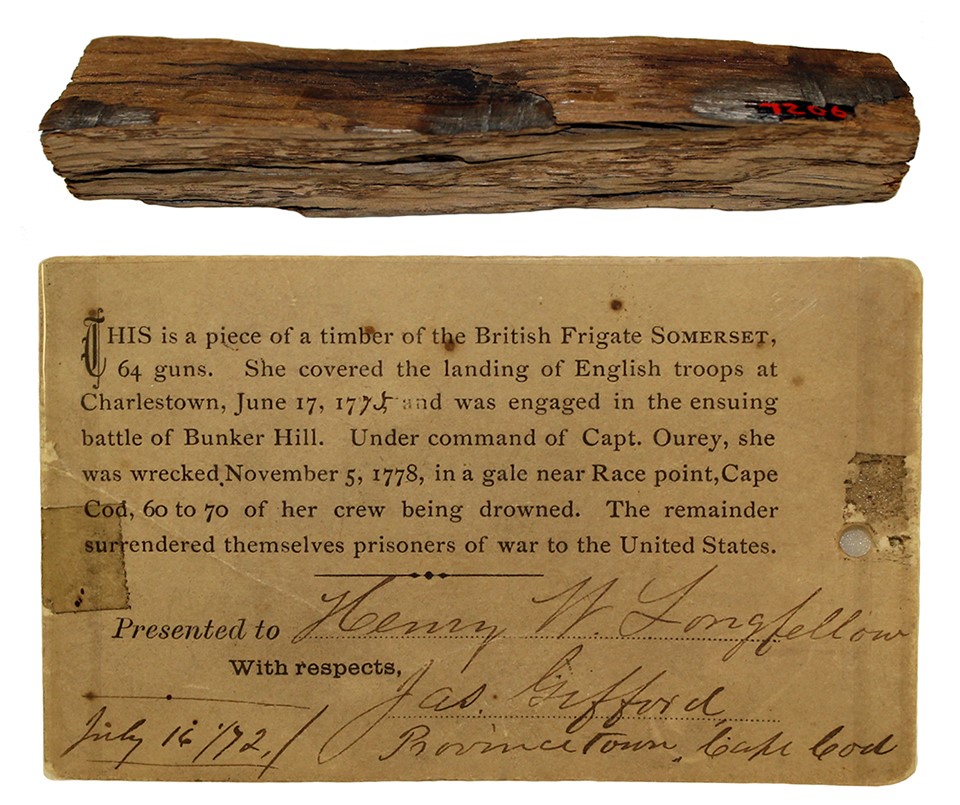 7206
THIS is a piece of a timber of the British Frigate SOMERSET,
64 guns. She covered the landing of English troops at
Charlestown, June 17, 1775 and was engaged in the ensuing
battle of Bunker Hill. Under command of Capt. Ourey, she
was wrecked November 5, 1778, in a gale near Race point, Cape
Cod, 60 to 70 of her crew being drowned. The remainder
surrendered themselves prisoners of war to the United States.
Presented to Henry W. Longfellow
With respects,
Jas. Gifford
July 16 '72,
Provincetown, Cape Cod